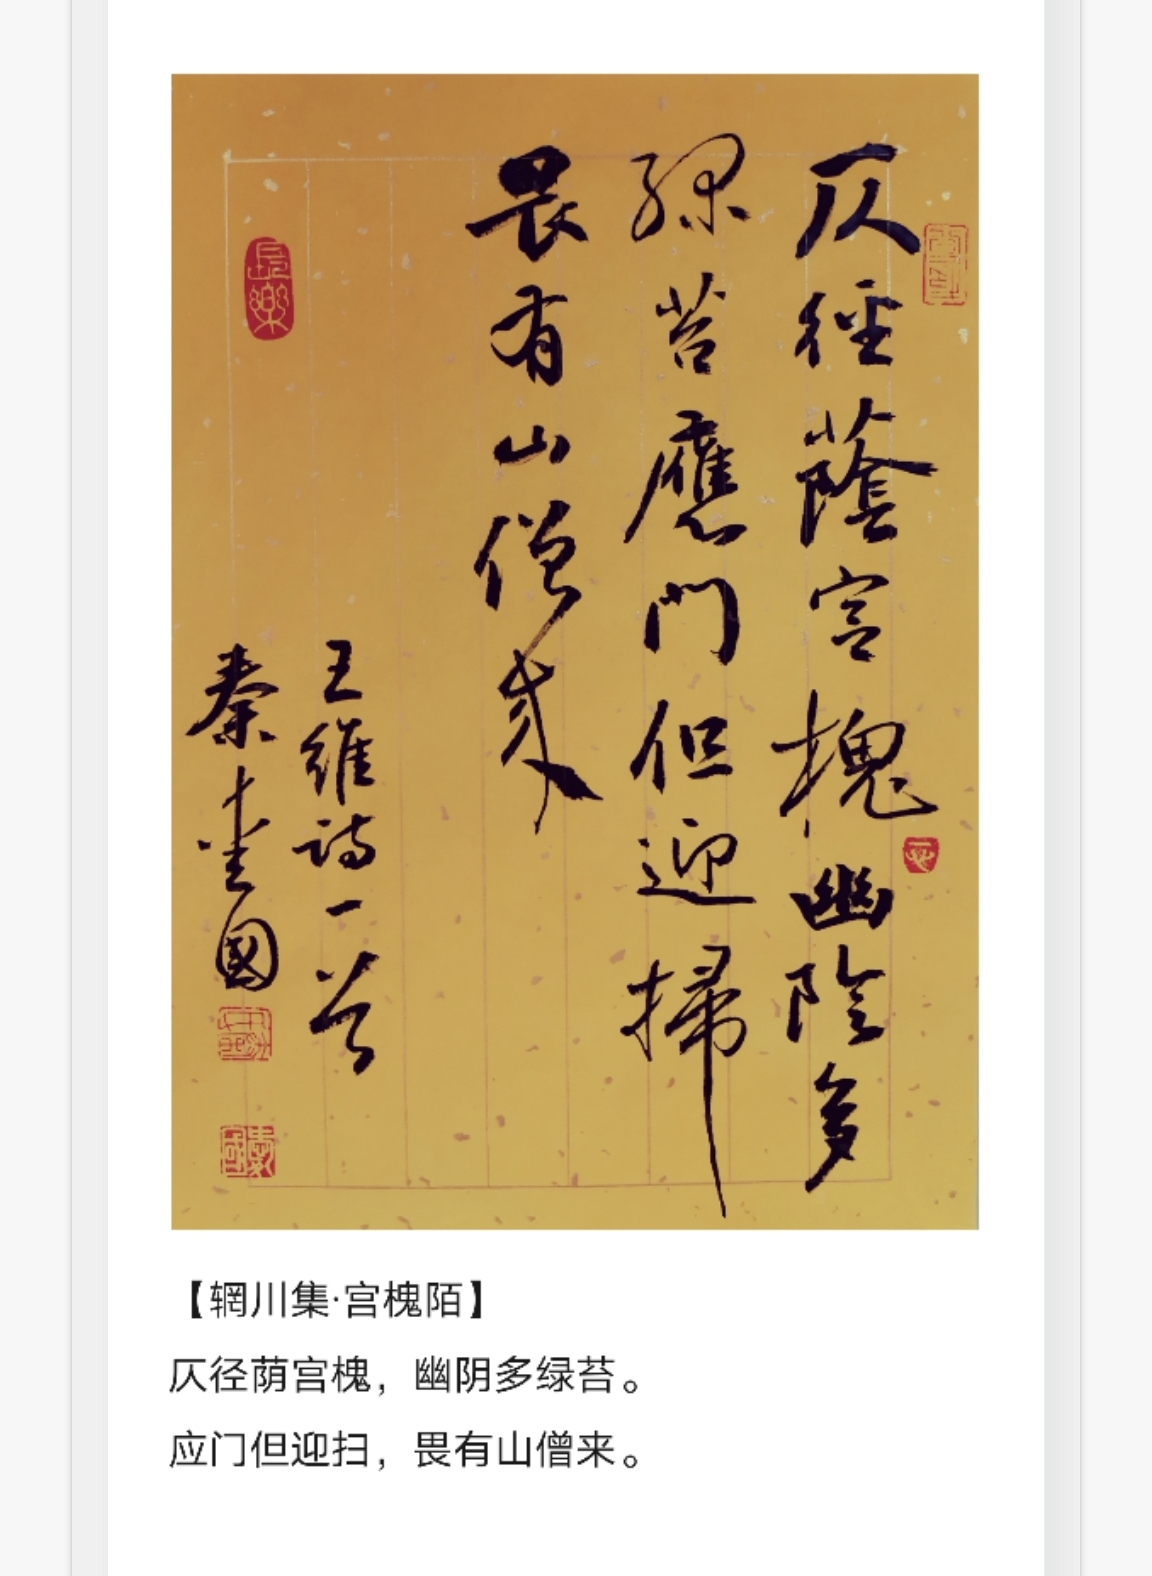 仄徑蔭宫槐幽陰多
綠苔應門但迎掃
畏有山僧来
王維詩一首
秦建國
長樂
【辋川集·宫槐陌】
仄径荫宫槐，幽阴多绿苔。
应门但迎扫，畏有山僧来。